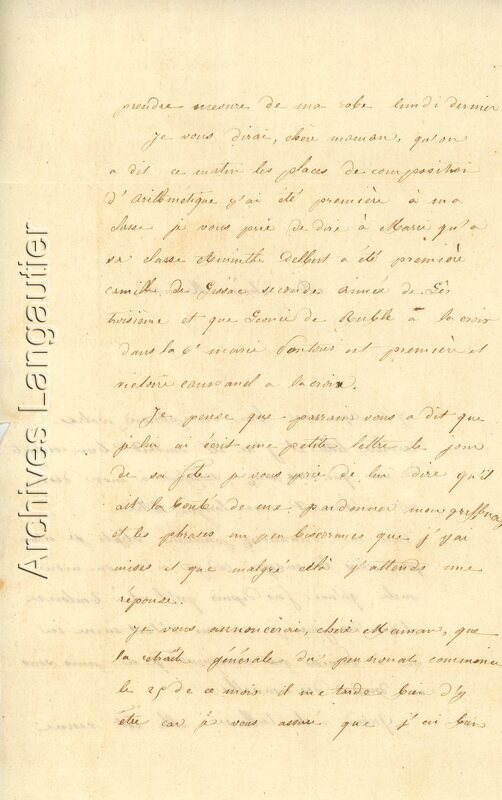 prendre mesure de ma robe lundi dernier
Je vous dirai, chère maman, qu'on
a dit ce matin les places de composition
d'arithmétique j'ai été première à ma
classe je vous prie de dire à Marie qu'à
sa classe Aminthe Delbert a été première
camille de Gissac seconde aimée de
troisième et que Leonie de Ruble a la croix
dans la 6e marie est première et
victoire a la croix.
Je pense que parrain vous a dit que
je lui ai écrit une petite lettre le jour
de sa fête je vous prie de lui dire qu'il
ait la bonté de me pardonner mon
et les phrases un peu que j'y ai
mises et que malgré cela j'attends une
réponse.
Je vous annoncerai, chère Maman, que
la retraite générale du pensionat commence
le 25 de ce mois il me tarde bien d'y
être car je vous assure que j'ai bien
Archives Langautier